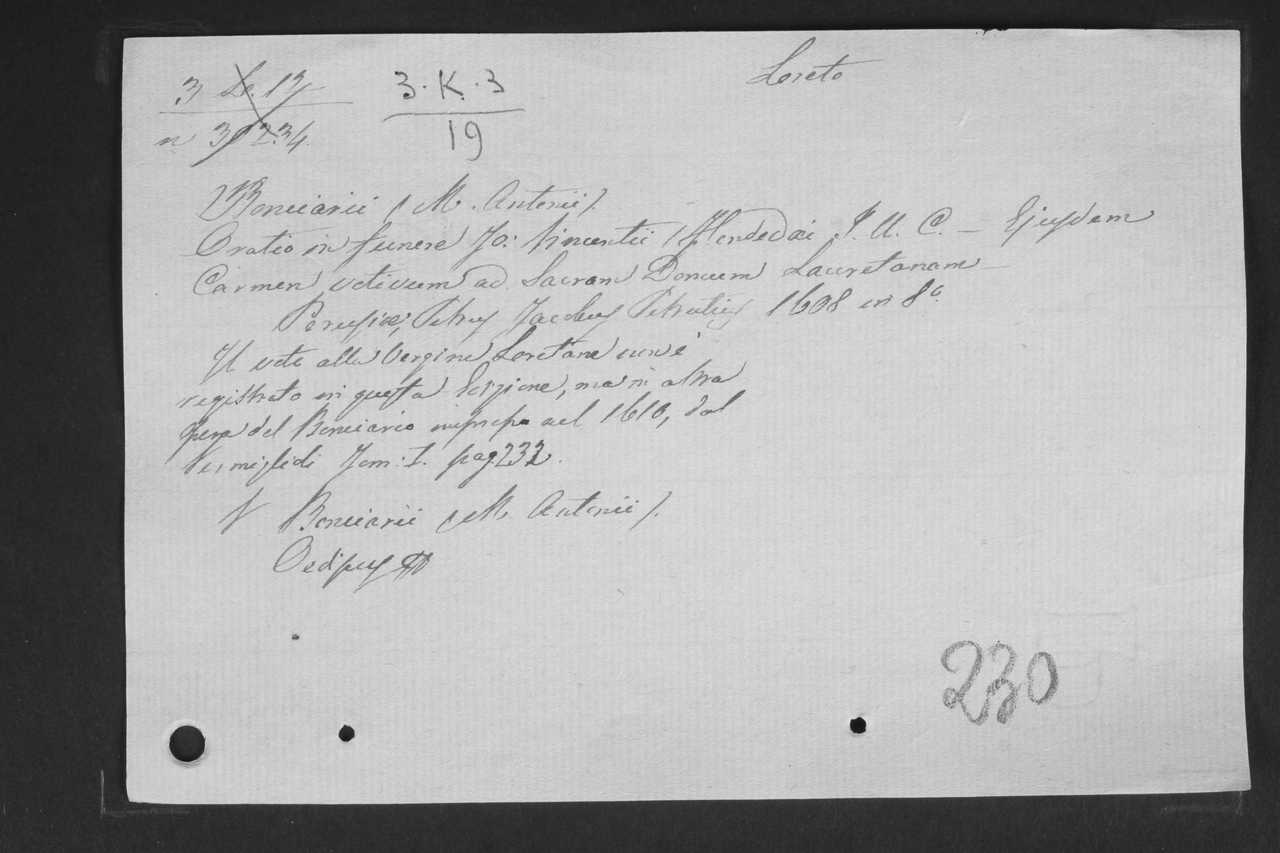 Loreto
3 Lo. 17
n. 30234.
3. K. 3
19
Bonciarii (M. Antonii).
Oratio in funere Jo: Vincentii Hondedaei I. U. C. — Ejusdem
Carmen votivum ad Sacram Domum Lauretanam —
Perusiae, Petrus Jacobus Petrutius 1608 in 8o.
Il voto alla Vergine Loretana non è
registrato in questa Edizione, ma in altra
opera del Bonciario impressa nel 1610, dal
Vermiglioli Tom: I. pag. 232.
V Bonciarii (M. Antonii).
Oedipus
230